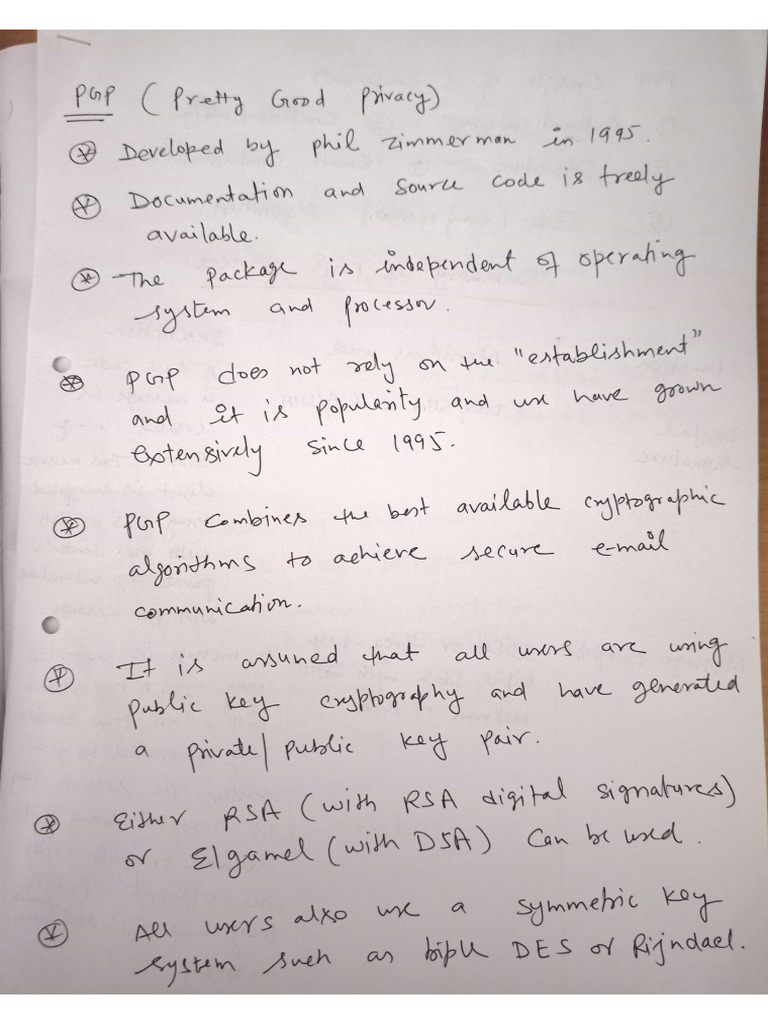 PGP (Pretty Good Privacy)
Developed by phil zimmerman in 1995.
Documentation and source code is freely
available.
The package is independent of operating
system and processor.
PGP does not rely on the "establishment"
and it is popularity and use have grown
extensively since 1995.
PGP combines the best available cryptographic
algorithms to achieve secure e-mail
communication.
It is assumed that all users are using
public key cryptography and have generated
a private/public key pair.
Either RSA (with RSA digital signatures)
or Elgamel (with DSA) can be used.
All users also use a symmetric key
system such as triple DES or Rijndael.